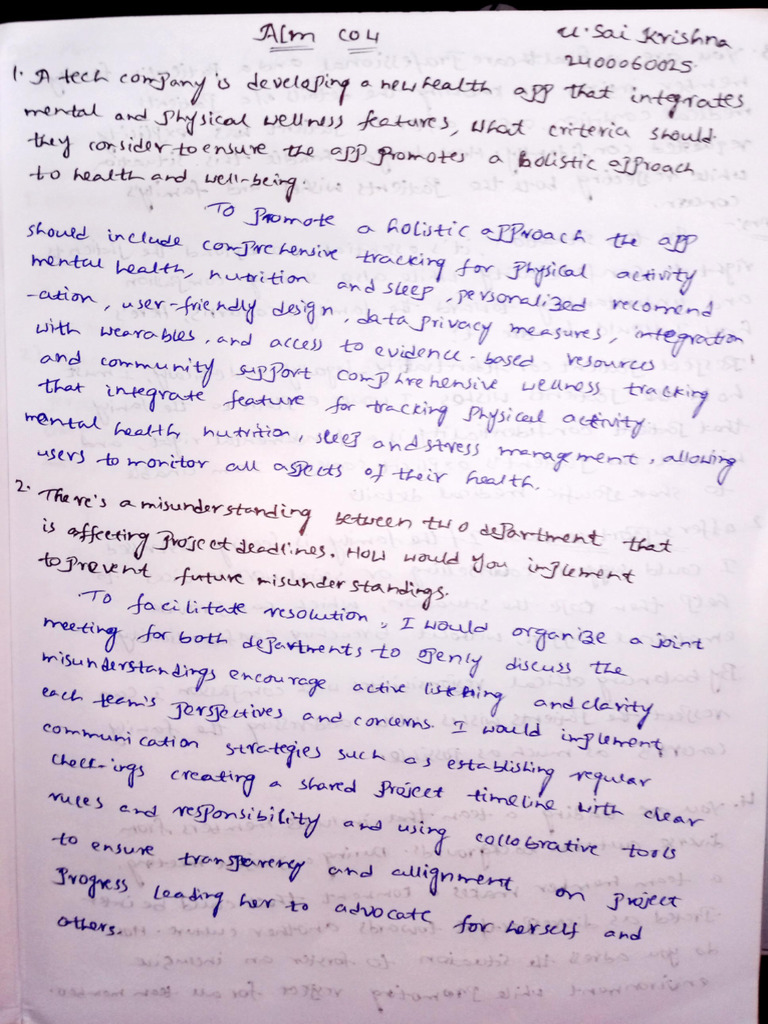 Alm CO4
U. Sai Krishna
2400060025
1. A tech company is developing a new health app that integrates
mental and physical wellness features, what criteria should
they consider to ensure the app promotes a holistic approach
to health and well-being.
To Promote a holistic approach the app
should include comprehensive tracking for physical activity
mental health, nutrition and sleep, personalized recomend
-ation, user-friendly design, data privacy measures, integration
with wearables, and access to evidence-based resources
and community support comphrehensive wellness tracking
that integrate feature for tracking physical activity
mental health, nutrition, sleep and stress management, allowing
users to monitor all aspects of their health.
2. There's a misunderstanding between two department that
is affecting project deadlines. How would you implement
to prevent future misunderstandings.
To facilitate resolution, I would organize a joint
meeting for both departments to openly discuss the
misunderstandings encourage active listening and clarity
each team's perspectives and concerns. I would implement
communication strategies such as establishing regular
check-ings creating a shared project timeline with clear
rules and responsibility and using collobrative tools
to ensure transparency and allignment on project
Progress leading her to advocate for herself and
others.